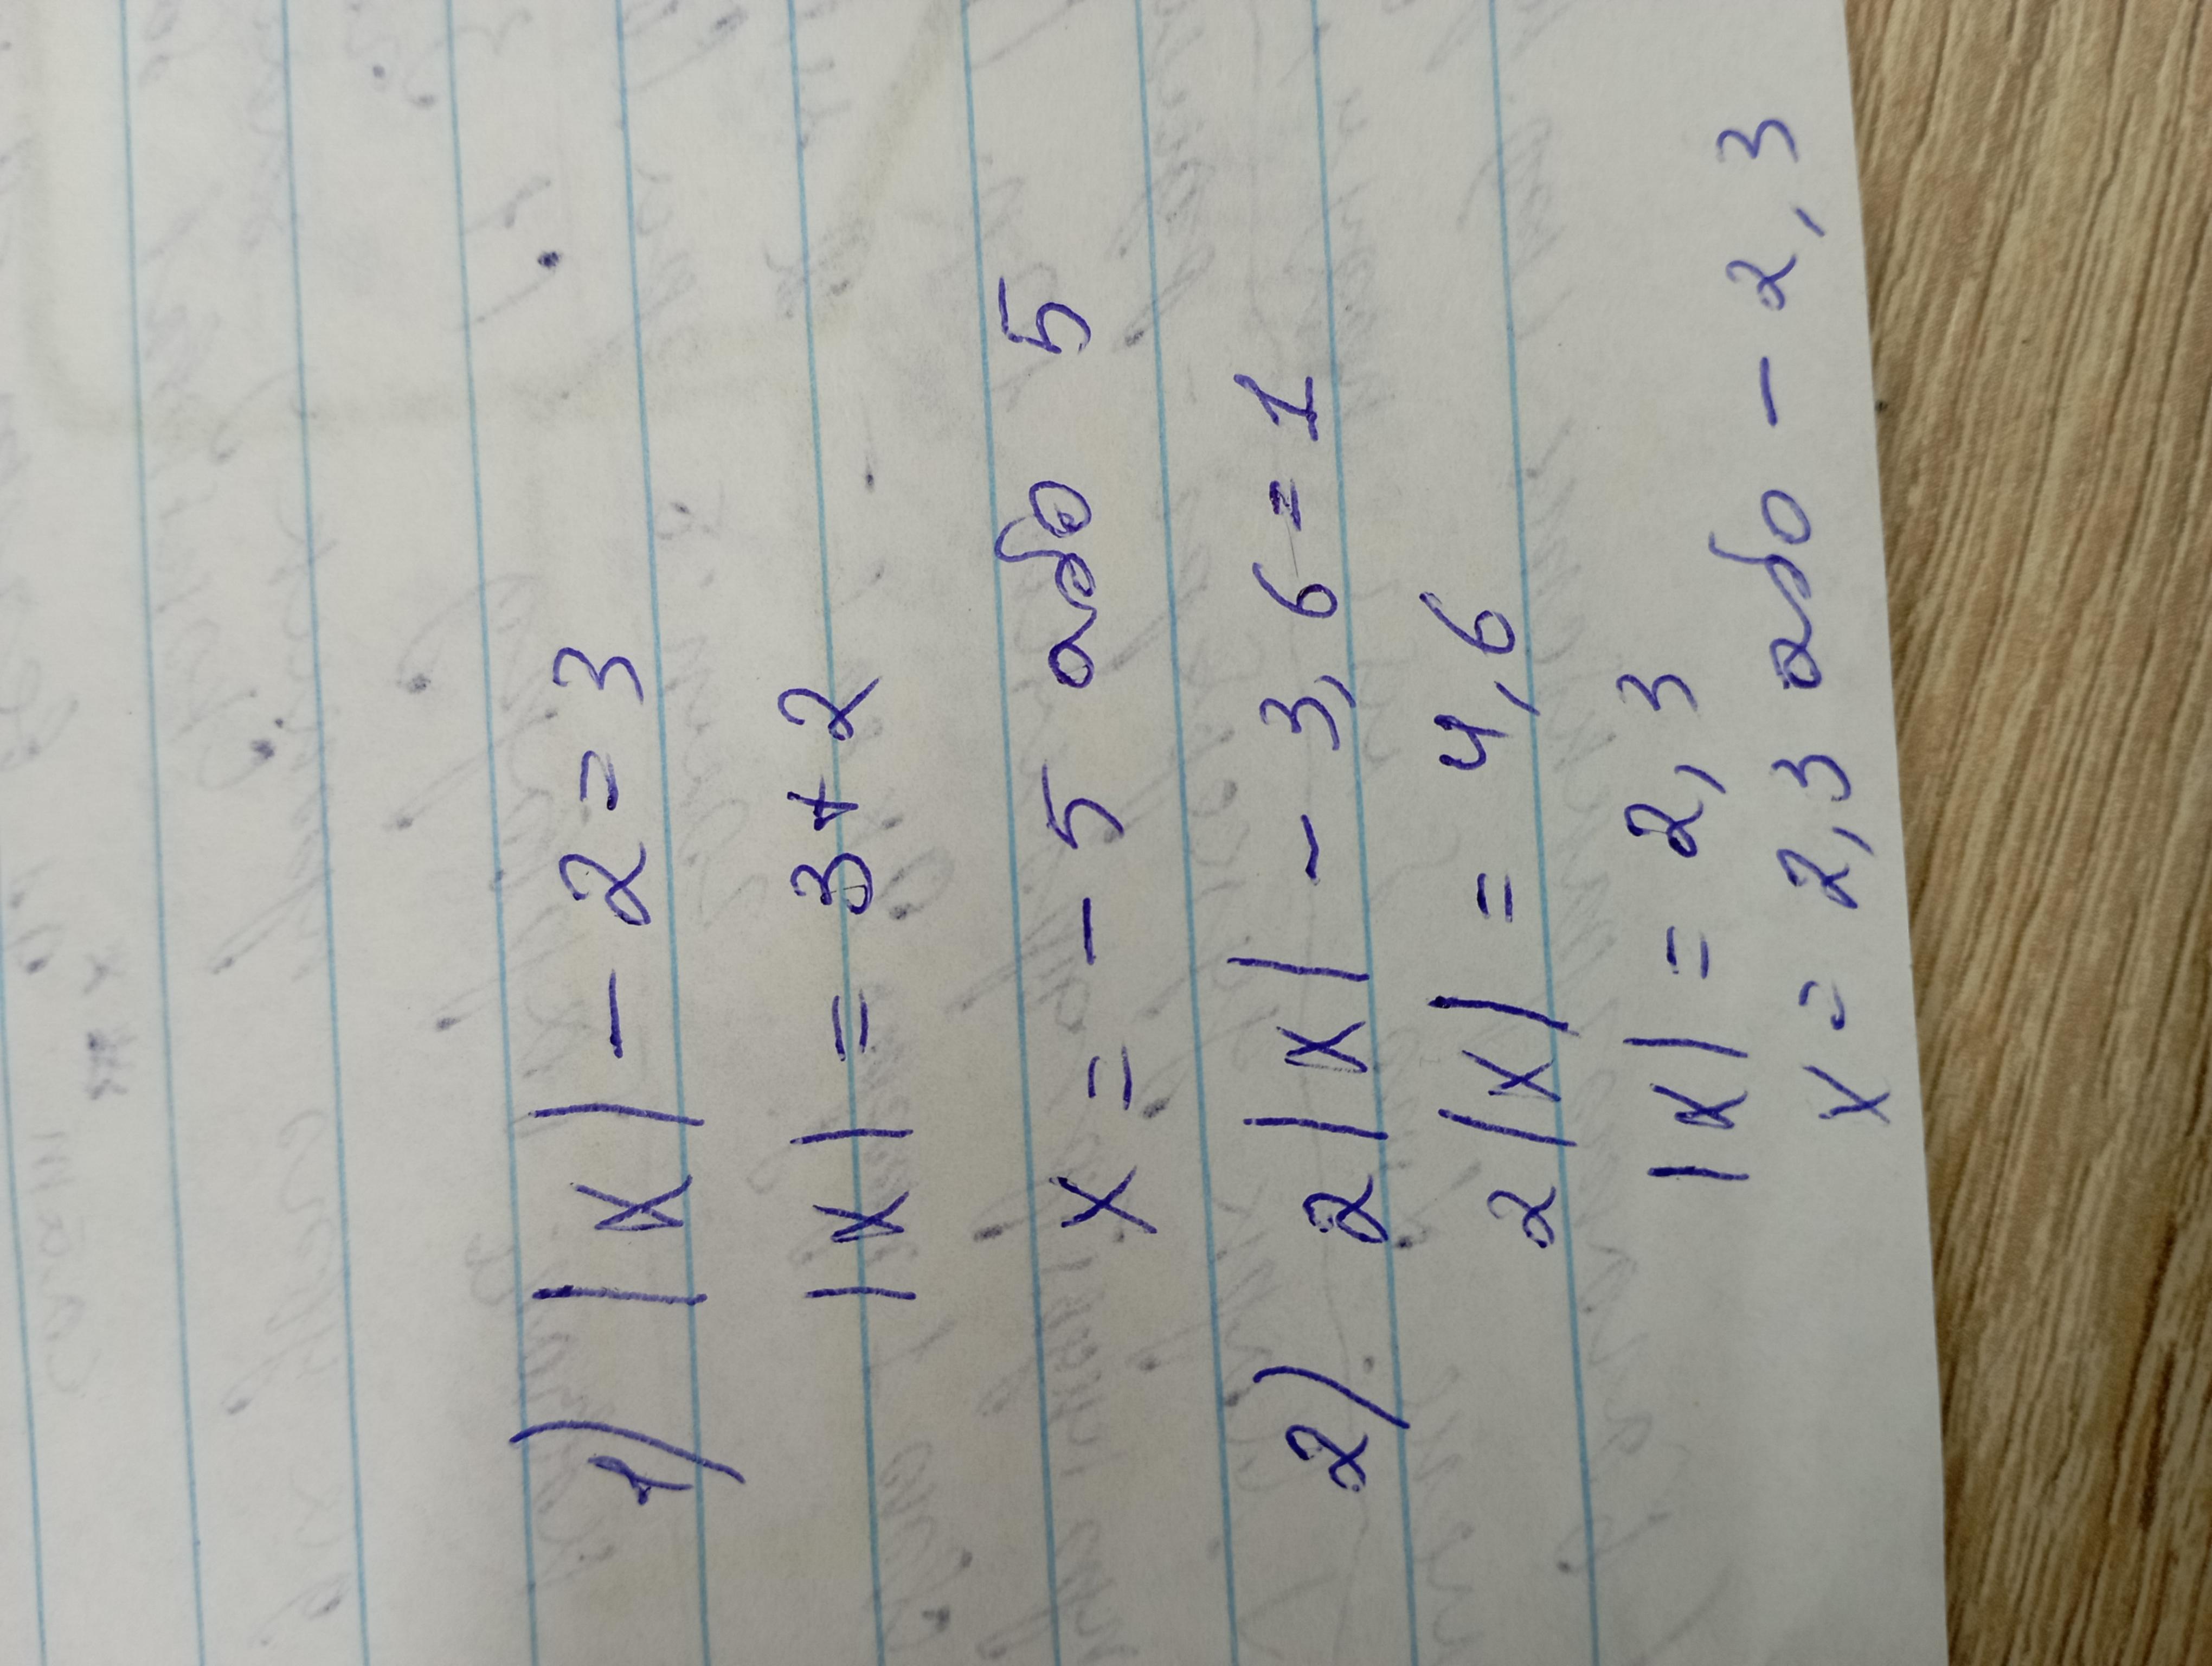 1) |x| - 2 = 3
|x| = 3 + 2
x = - 5 або 5
2) 2|x| - 3,6 = 1
2|x| = 4,6
|x| = 2,3
x = 2,3 або - 2,3